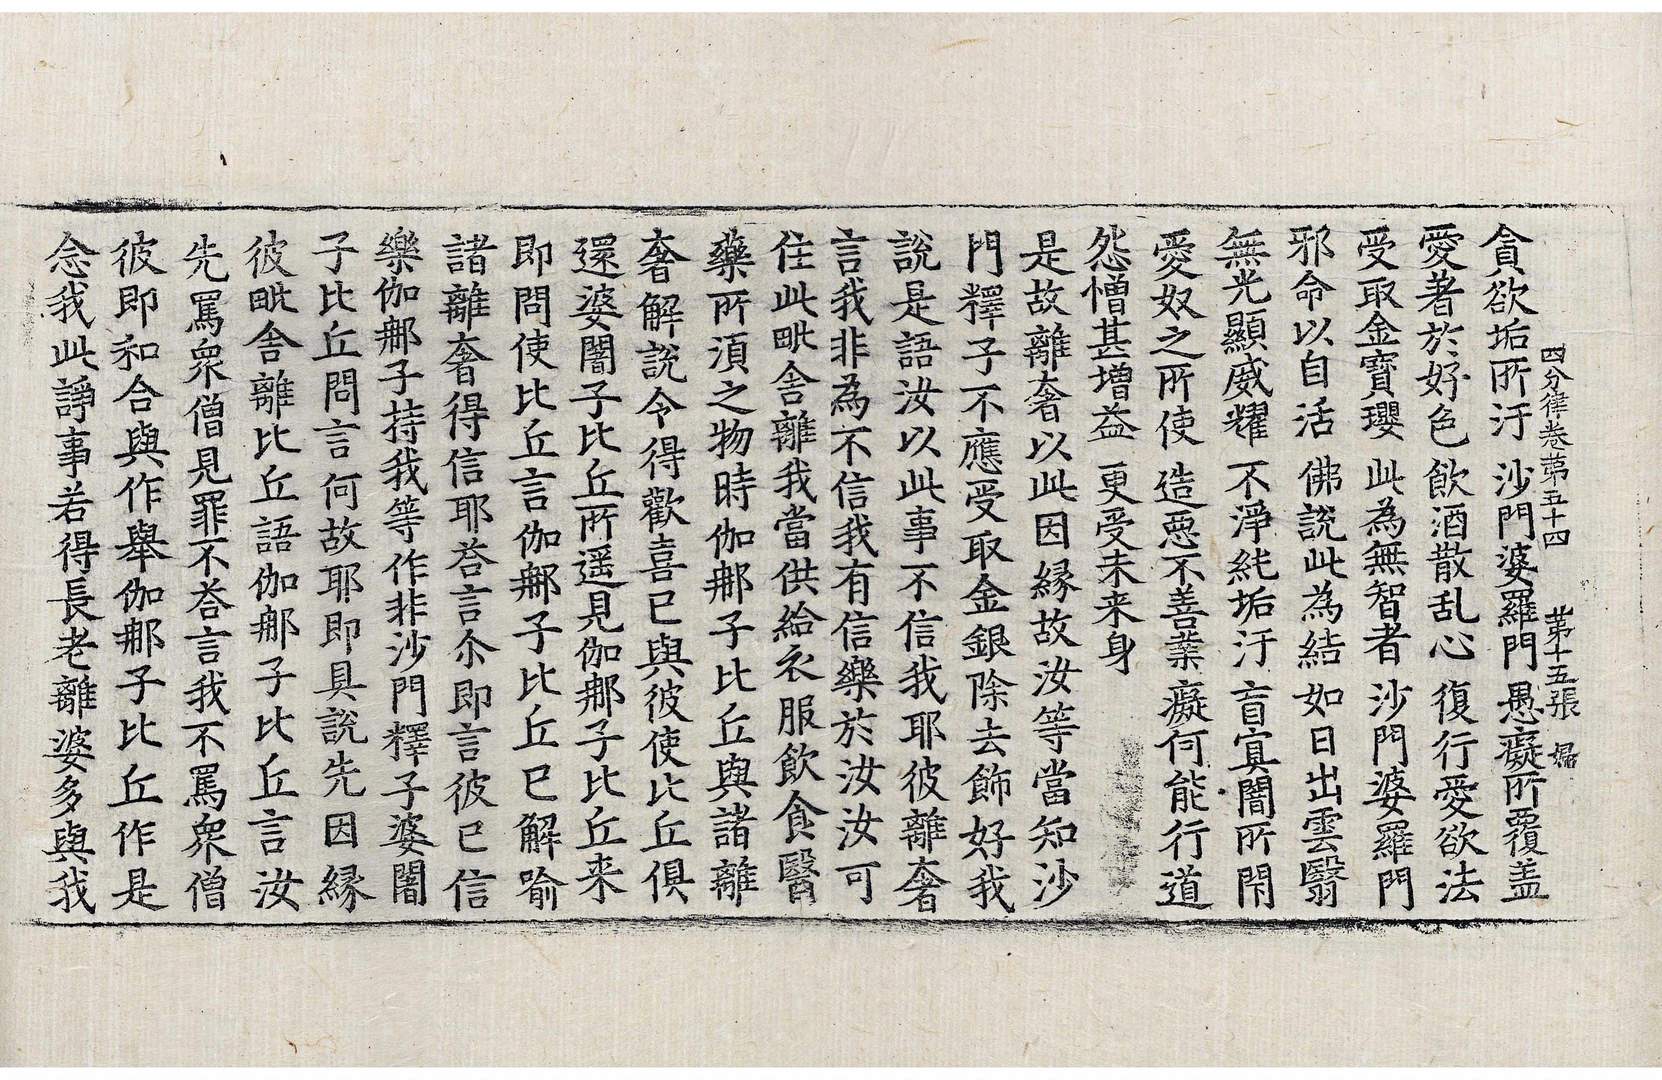 四分律卷第五十四　第十五張　婦
貪欲垢所汙　沙門婆羅門　愚癡所覆盖
愛著於好色　飲酒散乱心　復行愛欲法
受取金寶瓔　此為無智者　沙門婆羅門
邪命以自活　佛說此為結　如日出雲翳
無光顯威耀　不淨純垢汙　盲冥闇所閇
愛奴之所使　造惡不善業　癡何能行道
怨憎甚增益　更受未来身
是故離奢以此因縁故汝等當知沙
門釋子不應受取金銀除去飾好我
說是語汝以此事不信我耶彼離奢
言我非為不信我有信樂於汝汝可
住此毗舍離我當供給衣服飲食醫
藥所湏之物時伽㖠子比丘與諸離
奢解說令得歡喜已與彼使比丘俱
還婆闍子比丘所遥見伽㖠子比丘来
即問使比丘言伽㖠子比丘已解喻
諸離奢得信耶荅言尒即言彼已信
樂伽㖠子持我等作非沙門釋子婆闍
子比丘問言何故耶即具說先因縁
彼毗舍離比丘語伽㖠子比丘言汝
先罵衆僧見罪不荅言我不罵衆僧
彼即和合與作舉伽㖠子比丘作是
念我此諍事若得長老離婆多與我